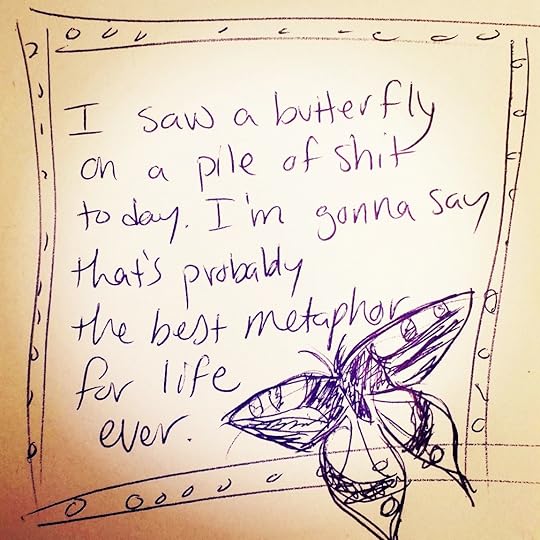 I saw a butterfly
on a pile of shit
today. I'm gonna say
that's probably
the best metaphor
for life
ever.